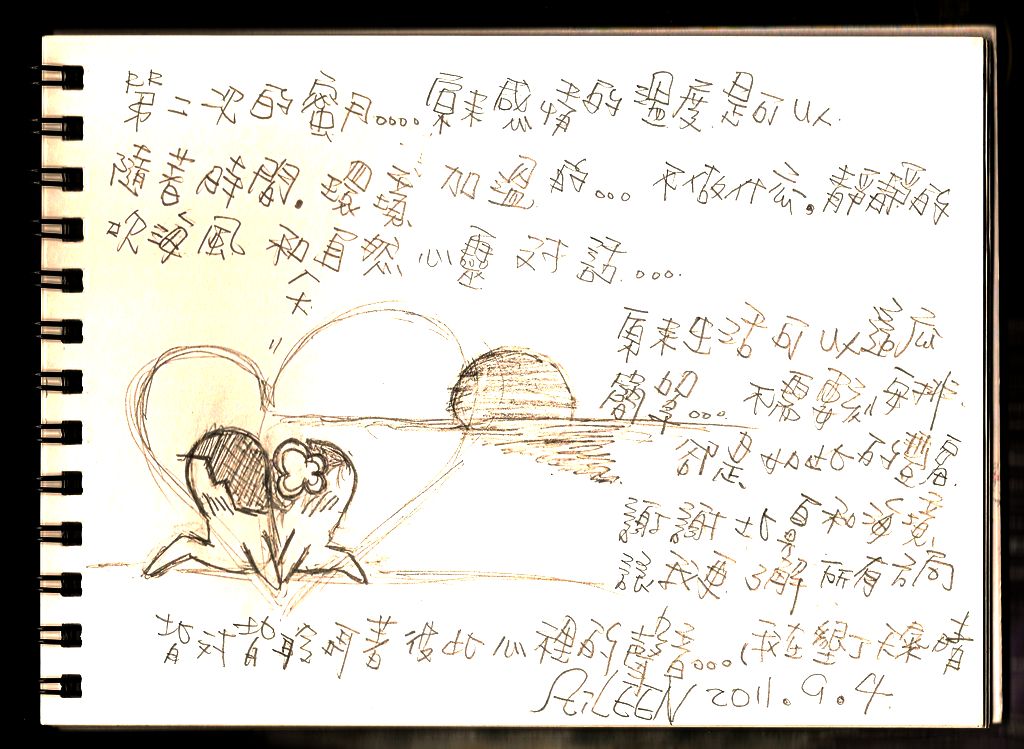 第二次的蜜月....原來感情的溫度是可以
隨著時間.環境 加溫的... 不做什麼.靜靜的
吹海風 和大自然心靈對話....
原來生活可以這麼
簡單... 不需要刻安排.
卻是如此的豐富.
謝謝北島和海境
讓我更了解所有
背對背聆聽著彼此心裡的聲音...(我在墾丁
AiLEEN 2011.9.4.